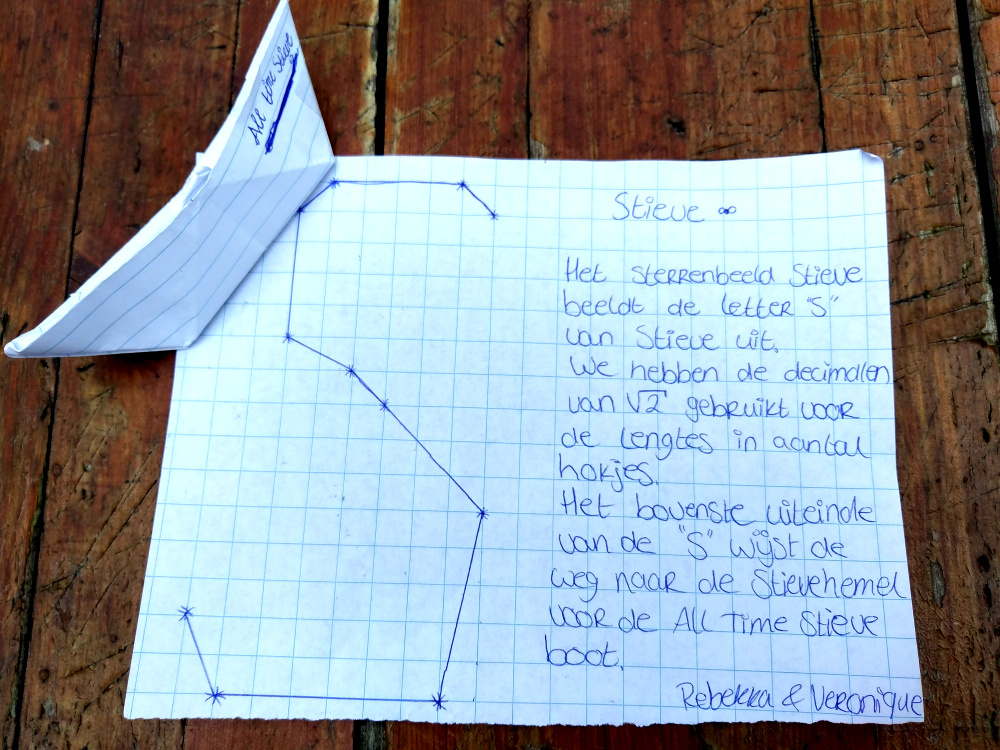 All time Stieve
Stieve ∞
Het sterrenbeeld Stieve
beeldt de letter "S"
van Stieve uit.
We hebben de decimalen
van √2 gebruikt voor
de lengtes in aantal
hokjes.
Het bovenste uiteinde
van de "S" wijst de
weg naar de Stievehemel
voor de All Time Stieve
boot.
Rebekka & Veronique